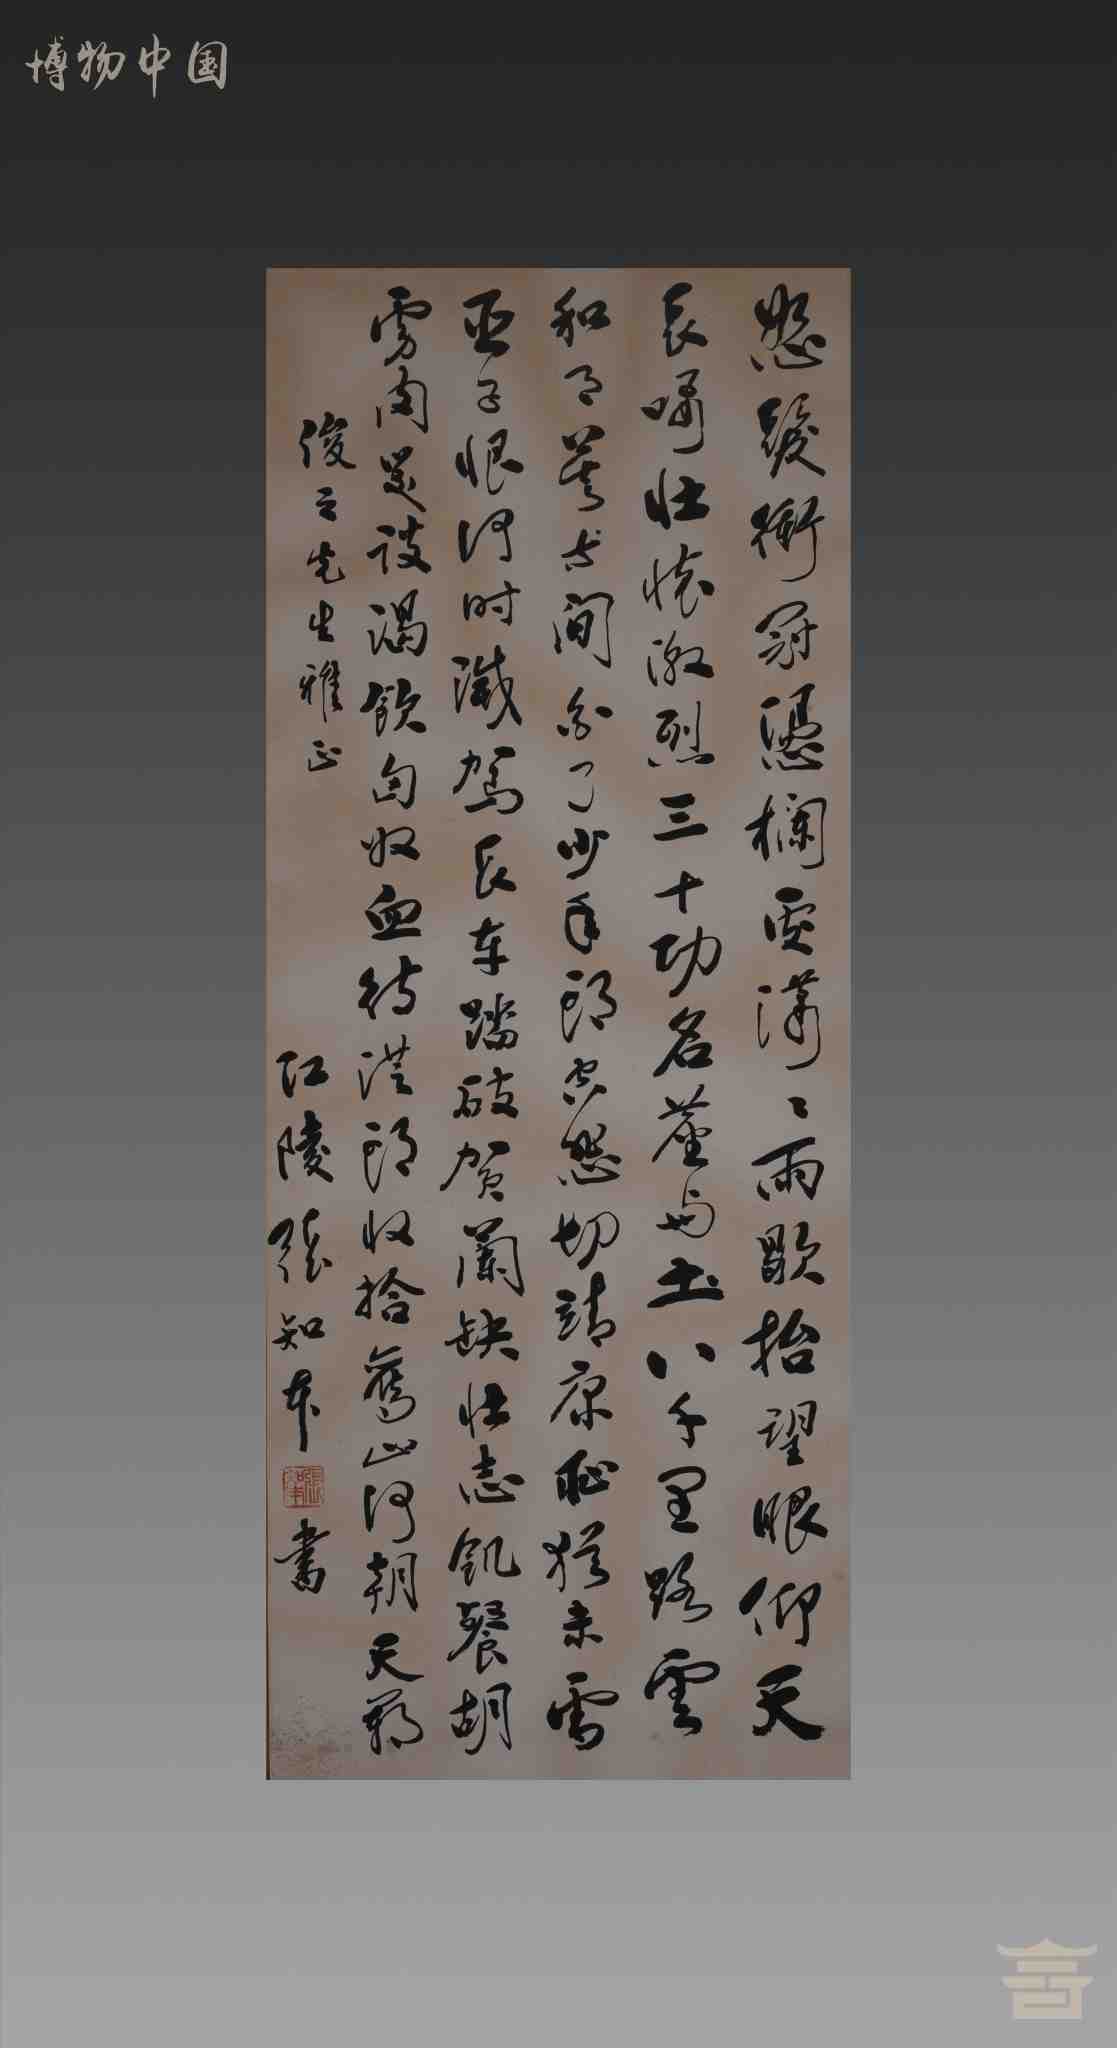 博物中国
怒髮衝冠憑欄處瀟〻雨歇抬望眼仰天
長嘯壯懷激烈三十功名塵与土八千里路雲
和月莫等閒白了少年頭空悲切靖康恥猶未雪
臣子恨何时滅駕長車踏破賀蘭缺壯志飢餐胡
虜肉笑談渴飲匈奴血待從頭收拾舊山河朝天闕
俊先生雅正
江陵張知本書
張知本